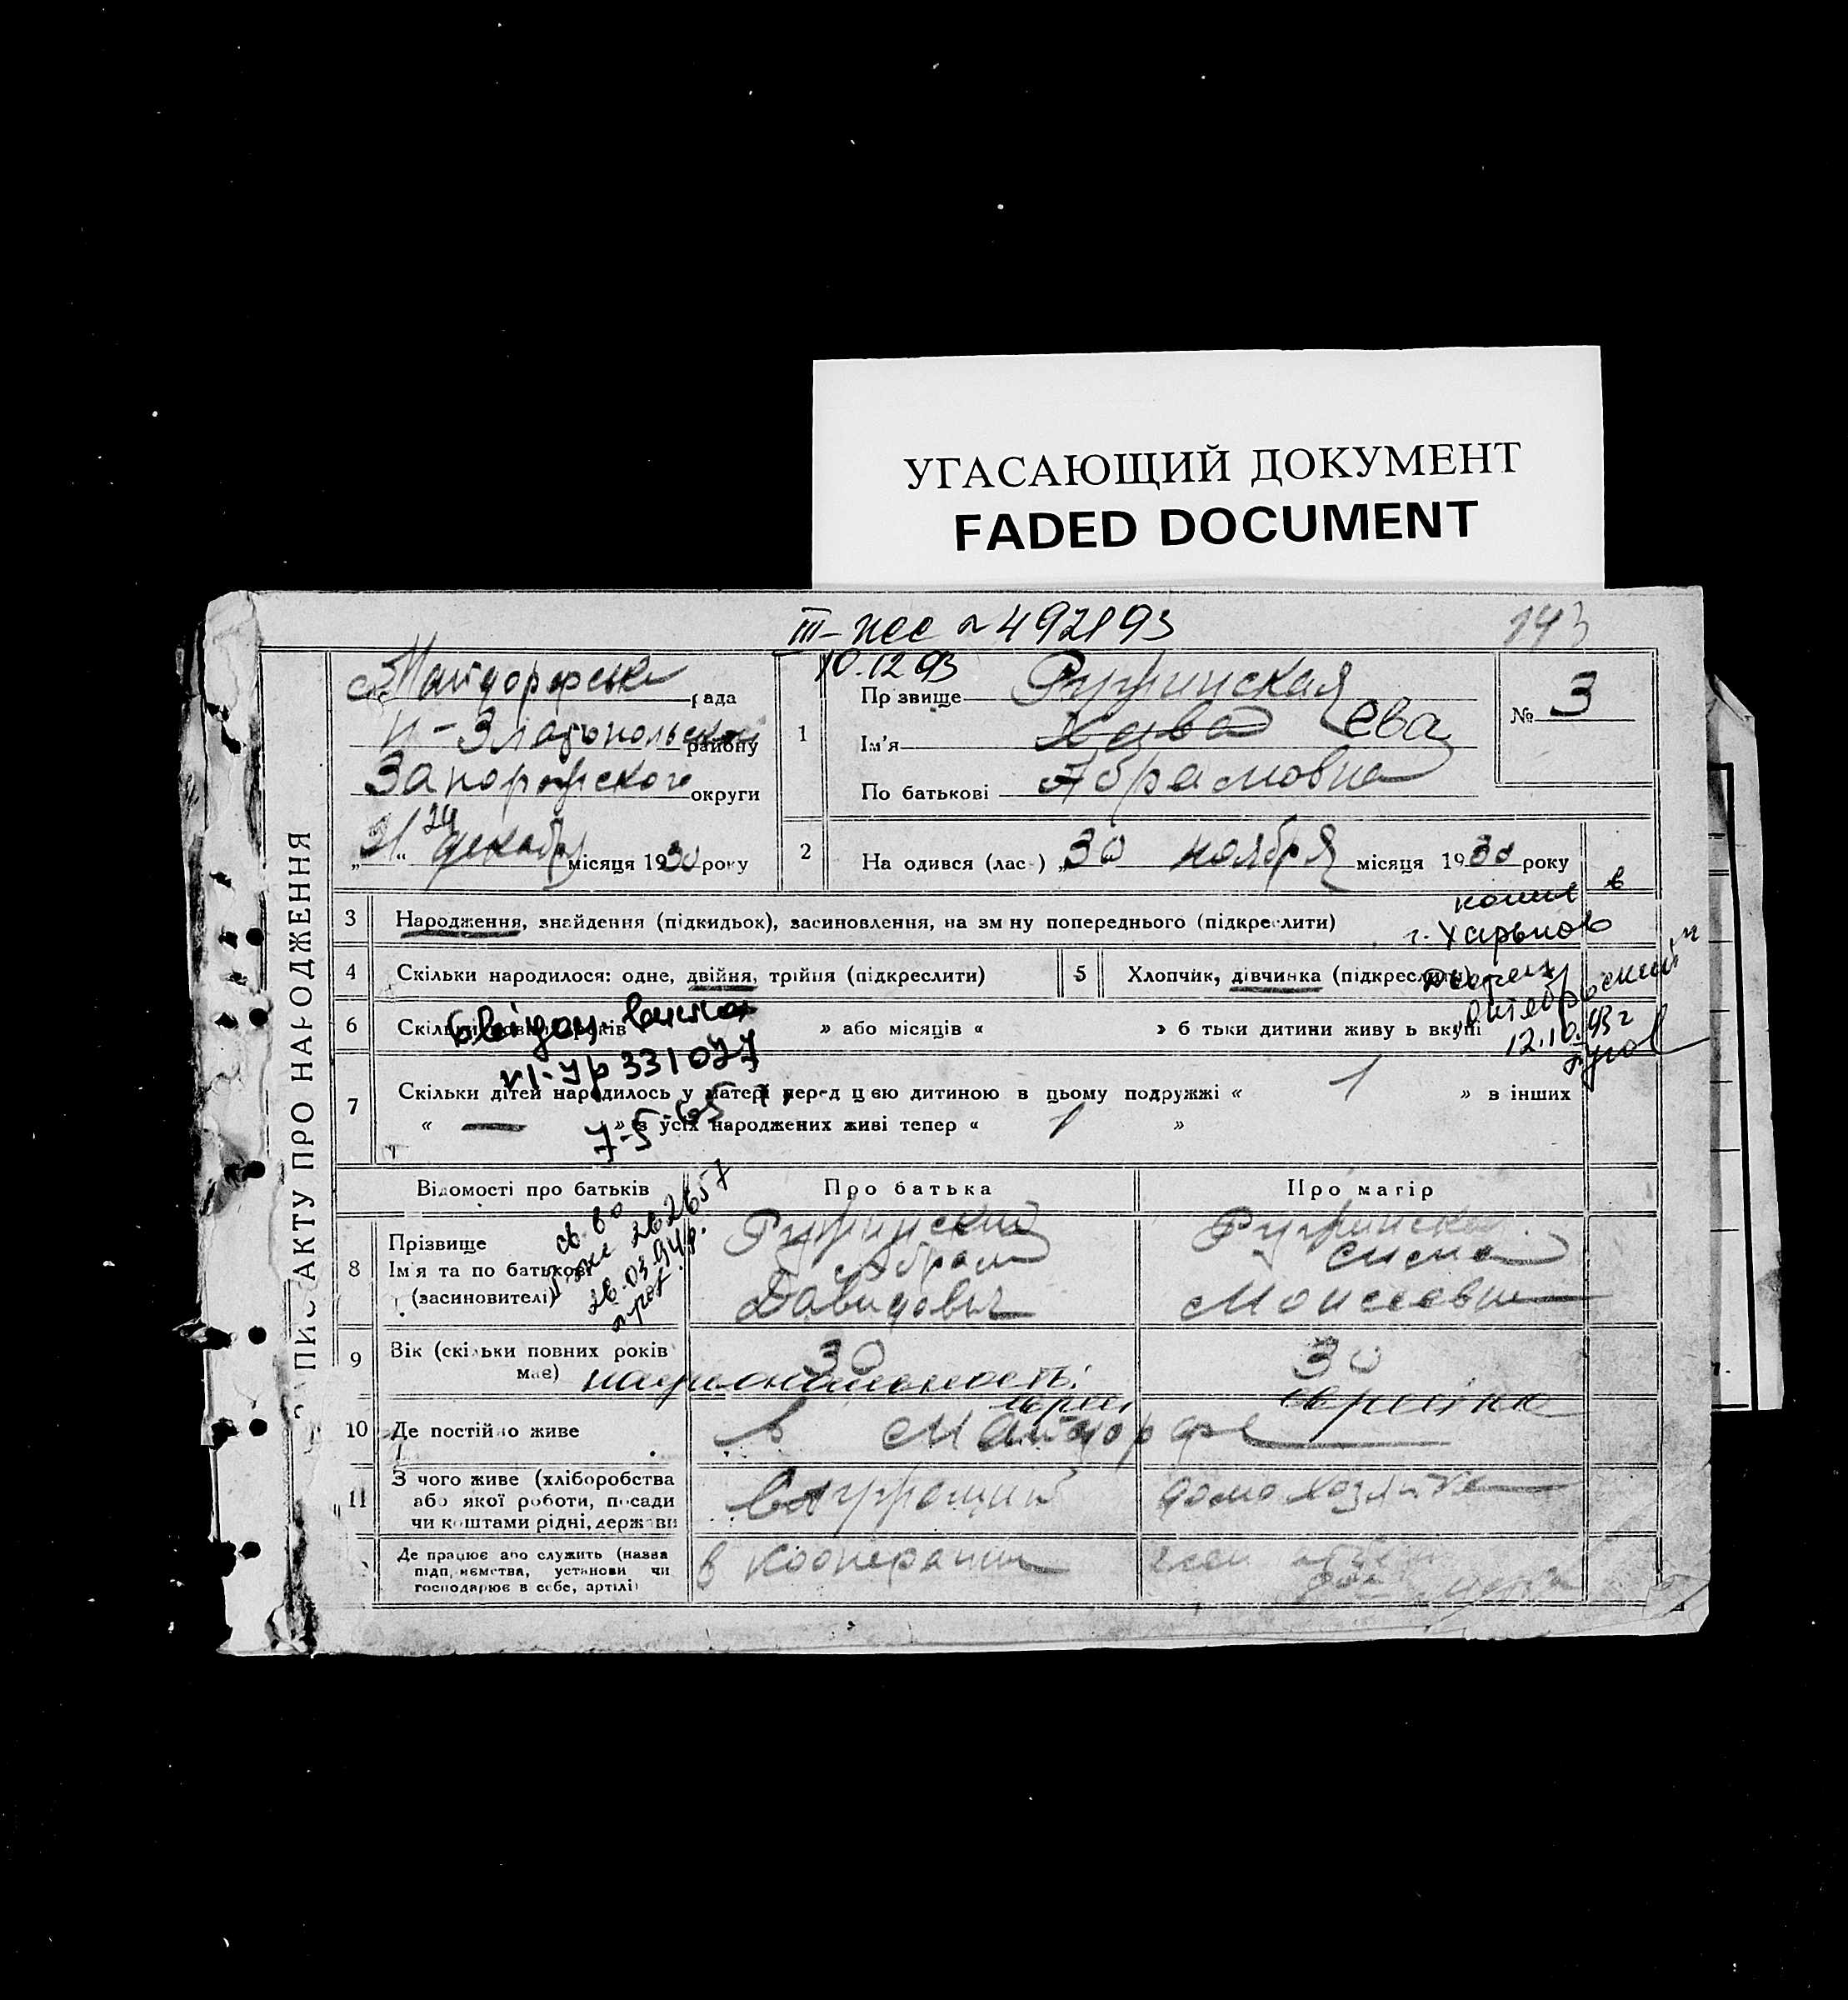 УГАСАЮЩИЙ ДОКУМЕНТ
FADED DOCUMENT
III- № 492193
10.12.93
193
Найдорфська рада
Н-Златопольский району
Запорожского округи
„31“ 24 декабря місяця 1930 року
ЗАПИС АКТУ ПРО НАРОДЖЕННЯ
1
Прізвище Ружинская
Ім'я Хава Ева
По батькові Абрамовна
№ 3
2
Народився (лась) „30 ноября місяця 1930 року
3 Народження, знайдення (підкидьок), засиновлення, на зміну попереднього (підкреслити)
копия в
г. Харьков
4 Скільки народилося: одне, двійня, трійня (підкреслити)
5 Хлопчик, дівчинка (підкреслити)
12.10.93 г
6 Скільки повних років » або місяців « » батьки дитини живуть вкупі
331077
7 Скільки дітей народилось у матері перед цією дитиною в цьому подружжі « 1 » в інших
« — » з усіх народжених живі тепер « 1 »
7-5-65
Відомості про батьків
Про батька
Про матір
8 Прізвище
Ім'я та по батькові
(засиновителі)
св-во
262657
26.03.94р.
Ружинский
Абрам
Давидович
Ружинская
Сима
Моисеевна
9 Вік (скільки повних років
має)
30
30
национальность:
еврей
еврейка
10 Де постійно живе
в Майдорфе
11 З чого живе (хліборобства
або якої роботи, посади
чи коштами рідні, держави
домохозяйка
Де працює або служить (назва
підприємства, установи чи
господарює в себе, артілі)
в кооперации